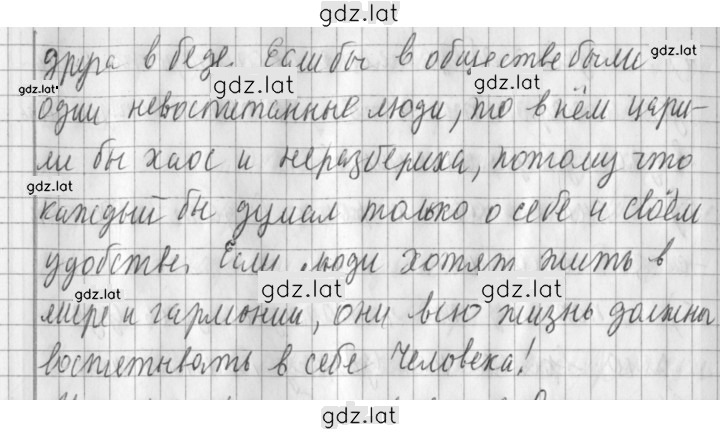 gdz.lat
друга в беде. Если бы в обществе были gdz.lat
gdz.lat gdz.lat gdz.lat
одни невоспитанные люди, то в нём цари-
ли бы хаос и неразбериха, потому что
gdz.lat
каждый бы думал только о себе и своём
удобстве. Если люди хотят жить в
gdz.lat gdz.lat gdz.lat
мире и гармонии, они всю жизнь должны
воспитывать в себе Человека!
gdz.lat